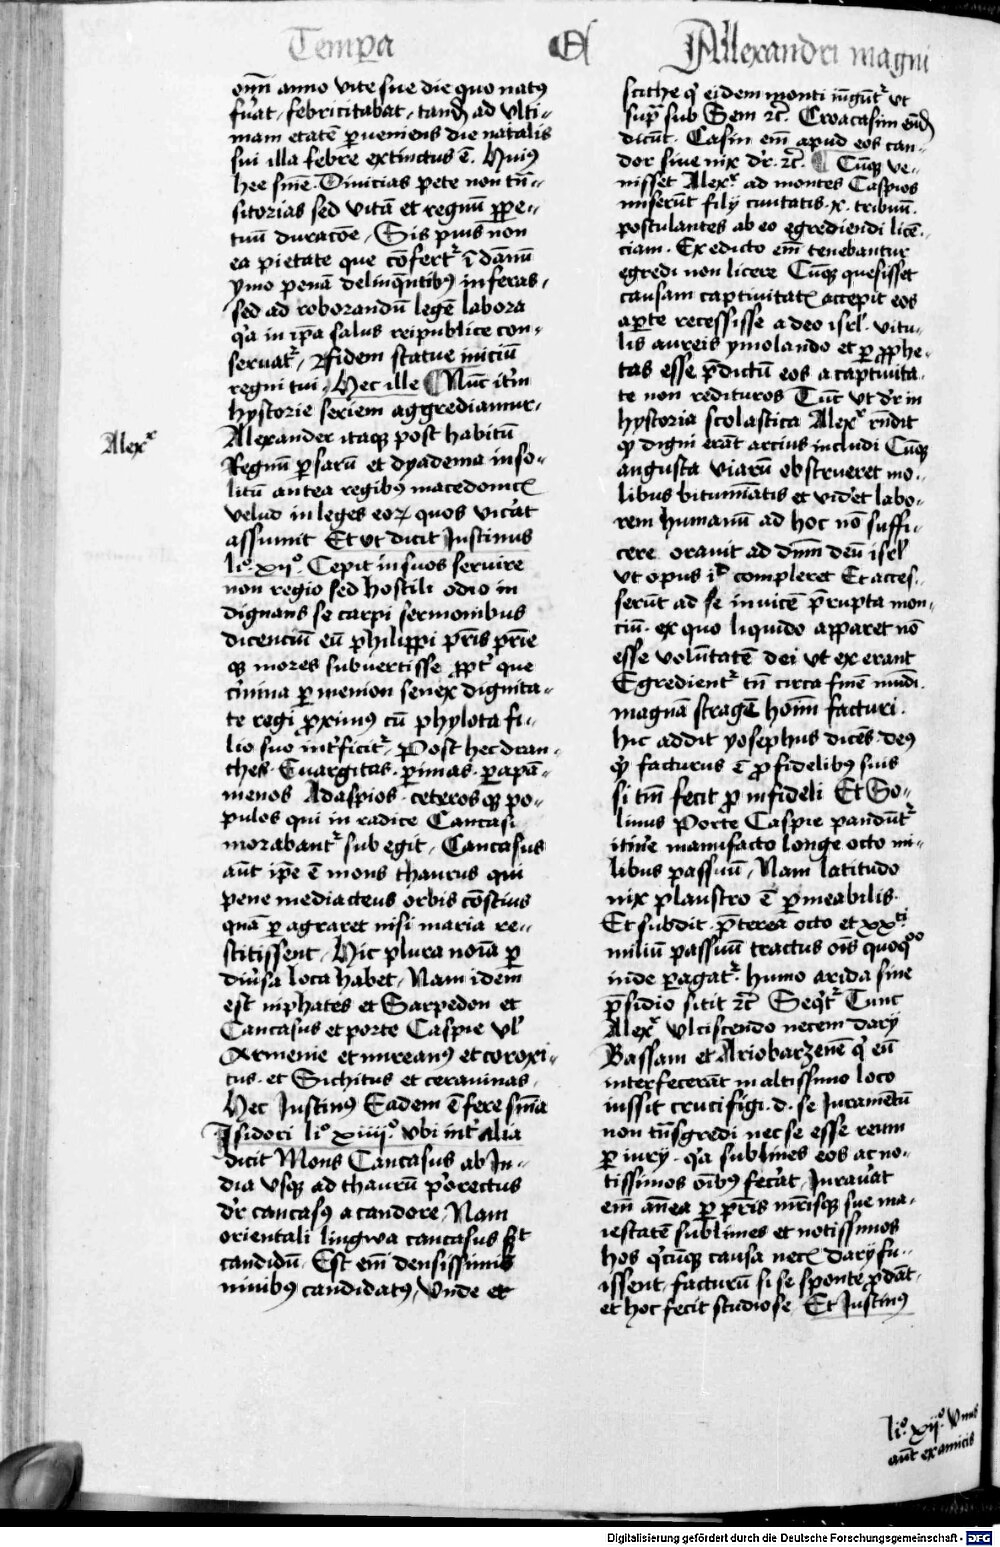 Tempa
Allexandri magni
om̄i anno vite sue die quo natꝰ
fu̇at / febricitabat / tandē ad vlti⸗
mam etatē ꝑueniens die natalis
sui illa febre extinctus ē. Huiꝰ
hee sn̄ie. Diuicias pete non tn̄⸗
sitorias sed vitā et regnū ꝑpe⸗
tuū duracōe / Sis pius non
ea pietate que cōfertᷣ ī dānū
ymo penā delinqn̄tibꝰ inferas /
sed ad roborandū legē labora
qꝛ in ip̄a salus reipublice con⸗
seruatᷣ / Fidem statue iniciū
regni tui / Hec ille ¶ Nūc it̄m
hystorie seriem aggrediamur /
Alexʳ
Alexander itaqꝫ post habitū
Regnū ꝑsarū et dyadema inso⸗
litū antea regibꝰ macedonicꝭ
velud in leges eoꝝ quos vic̄at
assumit Et vt dicit Justinus
liº xijº. Cepit in suos seruire
non regio sed hostili odio in
dignans se carpi sermonibus
dicenciū eū philippi pr̄is pr̄ie
qꝫ mores subuertisse ꝓpt̄ que
c̄mina ꝑmenion senex dignita⸗
te regi ꝓximꝰ cū phylota fi⸗
lio suo int̄ficitᷣ / Post hec dran⸗
thes. Euargitas. ꝑimas. ꝑapā⸗
menos Adaspios. ceterosqꝫ po⸗
pulos qui in radice Caucasi
morabantᷣ subegit / Caucasus
aūt ip̄e ē mons thaurus qui
pene mediacteus orbis cōscius
quā ꝑagraret nisi maria re⸗
stitissent / Hic plura noīa ꝑ
diu̇sa loca habet / Nam idem
est niphates et Sarpedon et
Caucasus et porte Caspie vl̄
Armenie et mireanꝰ et coroxi⸗
tus. et Sichitus et ceraunias /
Hec Justinꝰ Eadem ē fere sn̄ia
Isidori liº xiiijº. vbi int̄ alia
dicit Mons Caucasus ab In⸗
dia vsqꝫ ad thaurū porectus
dr̄ caucasꝰ a candore / Nam
orientali lingwa caucasus s̄t
candidū. Est em̄ densissimis
niuibꝰ candidatꝰ / Vnde et
scithe qͥ eidem monti iūgūtᷣ vt
supᵃ sub Sem ꝛc̄. Croacasim eūd̄
dicūt. Casin em̄ apud eos can⸗
dor siue nix dr̄. ꝛc̄. ¶ Cūqꝫ ve⸗
nisset Alexʳ ad montes Caspios
miserūt filij ciuitatis .x. tribuū.
postulantes ab eo egrediendi licē⸗
ciam. Ex edicto em̄ tenebantur
egredi non licere Cūqꝫ quesisset
causam captiuitatꝭ accepit eos
aꝑte recessisse a deo isrl̄. vitu⸗
lis aureis ymolando et ꝑ ꝓphe⸗
tas esse p̄dictū eos a captiuita⸗
te non redituros Tūc vt dr̄ in
hystoria scolastica Alexʳ rn̄dit
qͩ digni erāt arcius includi Cūqꝫ
angusta viarū obstrueret mo⸗
libus bitumīatis et vid̄et labo⸗
rem humanū ad hoc nō suffi⸗
cere orauit ad dn̄m deū isrl̄
vt opus iᵈ compleret Et acces⸗
serūt ad se inuicē p̄rupta mon⸗
ciū. ex quo liquido apparet nō
esse volūtatē dei vt exerant
Egredientᷣ tn̄ circa finē mūdi.
magnā stragē hoīm facturi.
hic addit yosephus dicēs. deꝰ
qͩ facturus ē ꝓ fidelibꝰ suis
si tm̄ fecit ꝓ infideli Et So⸗
linus Porte Caspie pandūtᷣ
itin̄e manufacto longe octo mi⸗
libus passuū / Nam latitudo
vix plaustro ē ꝑmeabilis.
Et subdit. p̄terea octo et xxᵗⁱ
miliū passuū tractus oīs quoqᵒ
inde ꝑagatᷣ. humo arida sine
p̄sidio sitit ꝛc̄ Seqͥtᷣ Tunc
Alexʳ vlciscendo necem darij
Bassam et Ariobarzenē qͥ eū
interfecerāt in altissimo loco
iussit crucifigi. d. se Iuramētū
non tn̄sgredi nec se esse reum
ꝑiurij. qꝛ sublimes eos ac no⸗
tissimos oībꝰ fec̄at / Jurau̇at
em̄ an̄ea ꝑ pr̄is mr̄isqꝫ sue ma⸗
iestatē sublimes et notissimos
hos qͥcūqꝫ causa necꝭ darij fu⸗
issent / facturū si se sponte ꝓdāt /
et hoc fecit studiose / Et Justinꝰ
liº. xijº. Vnus
aūt ex amicis
Digitalisierung gefördert durch die Deutsche Forschungsgemeinschaft - DFG